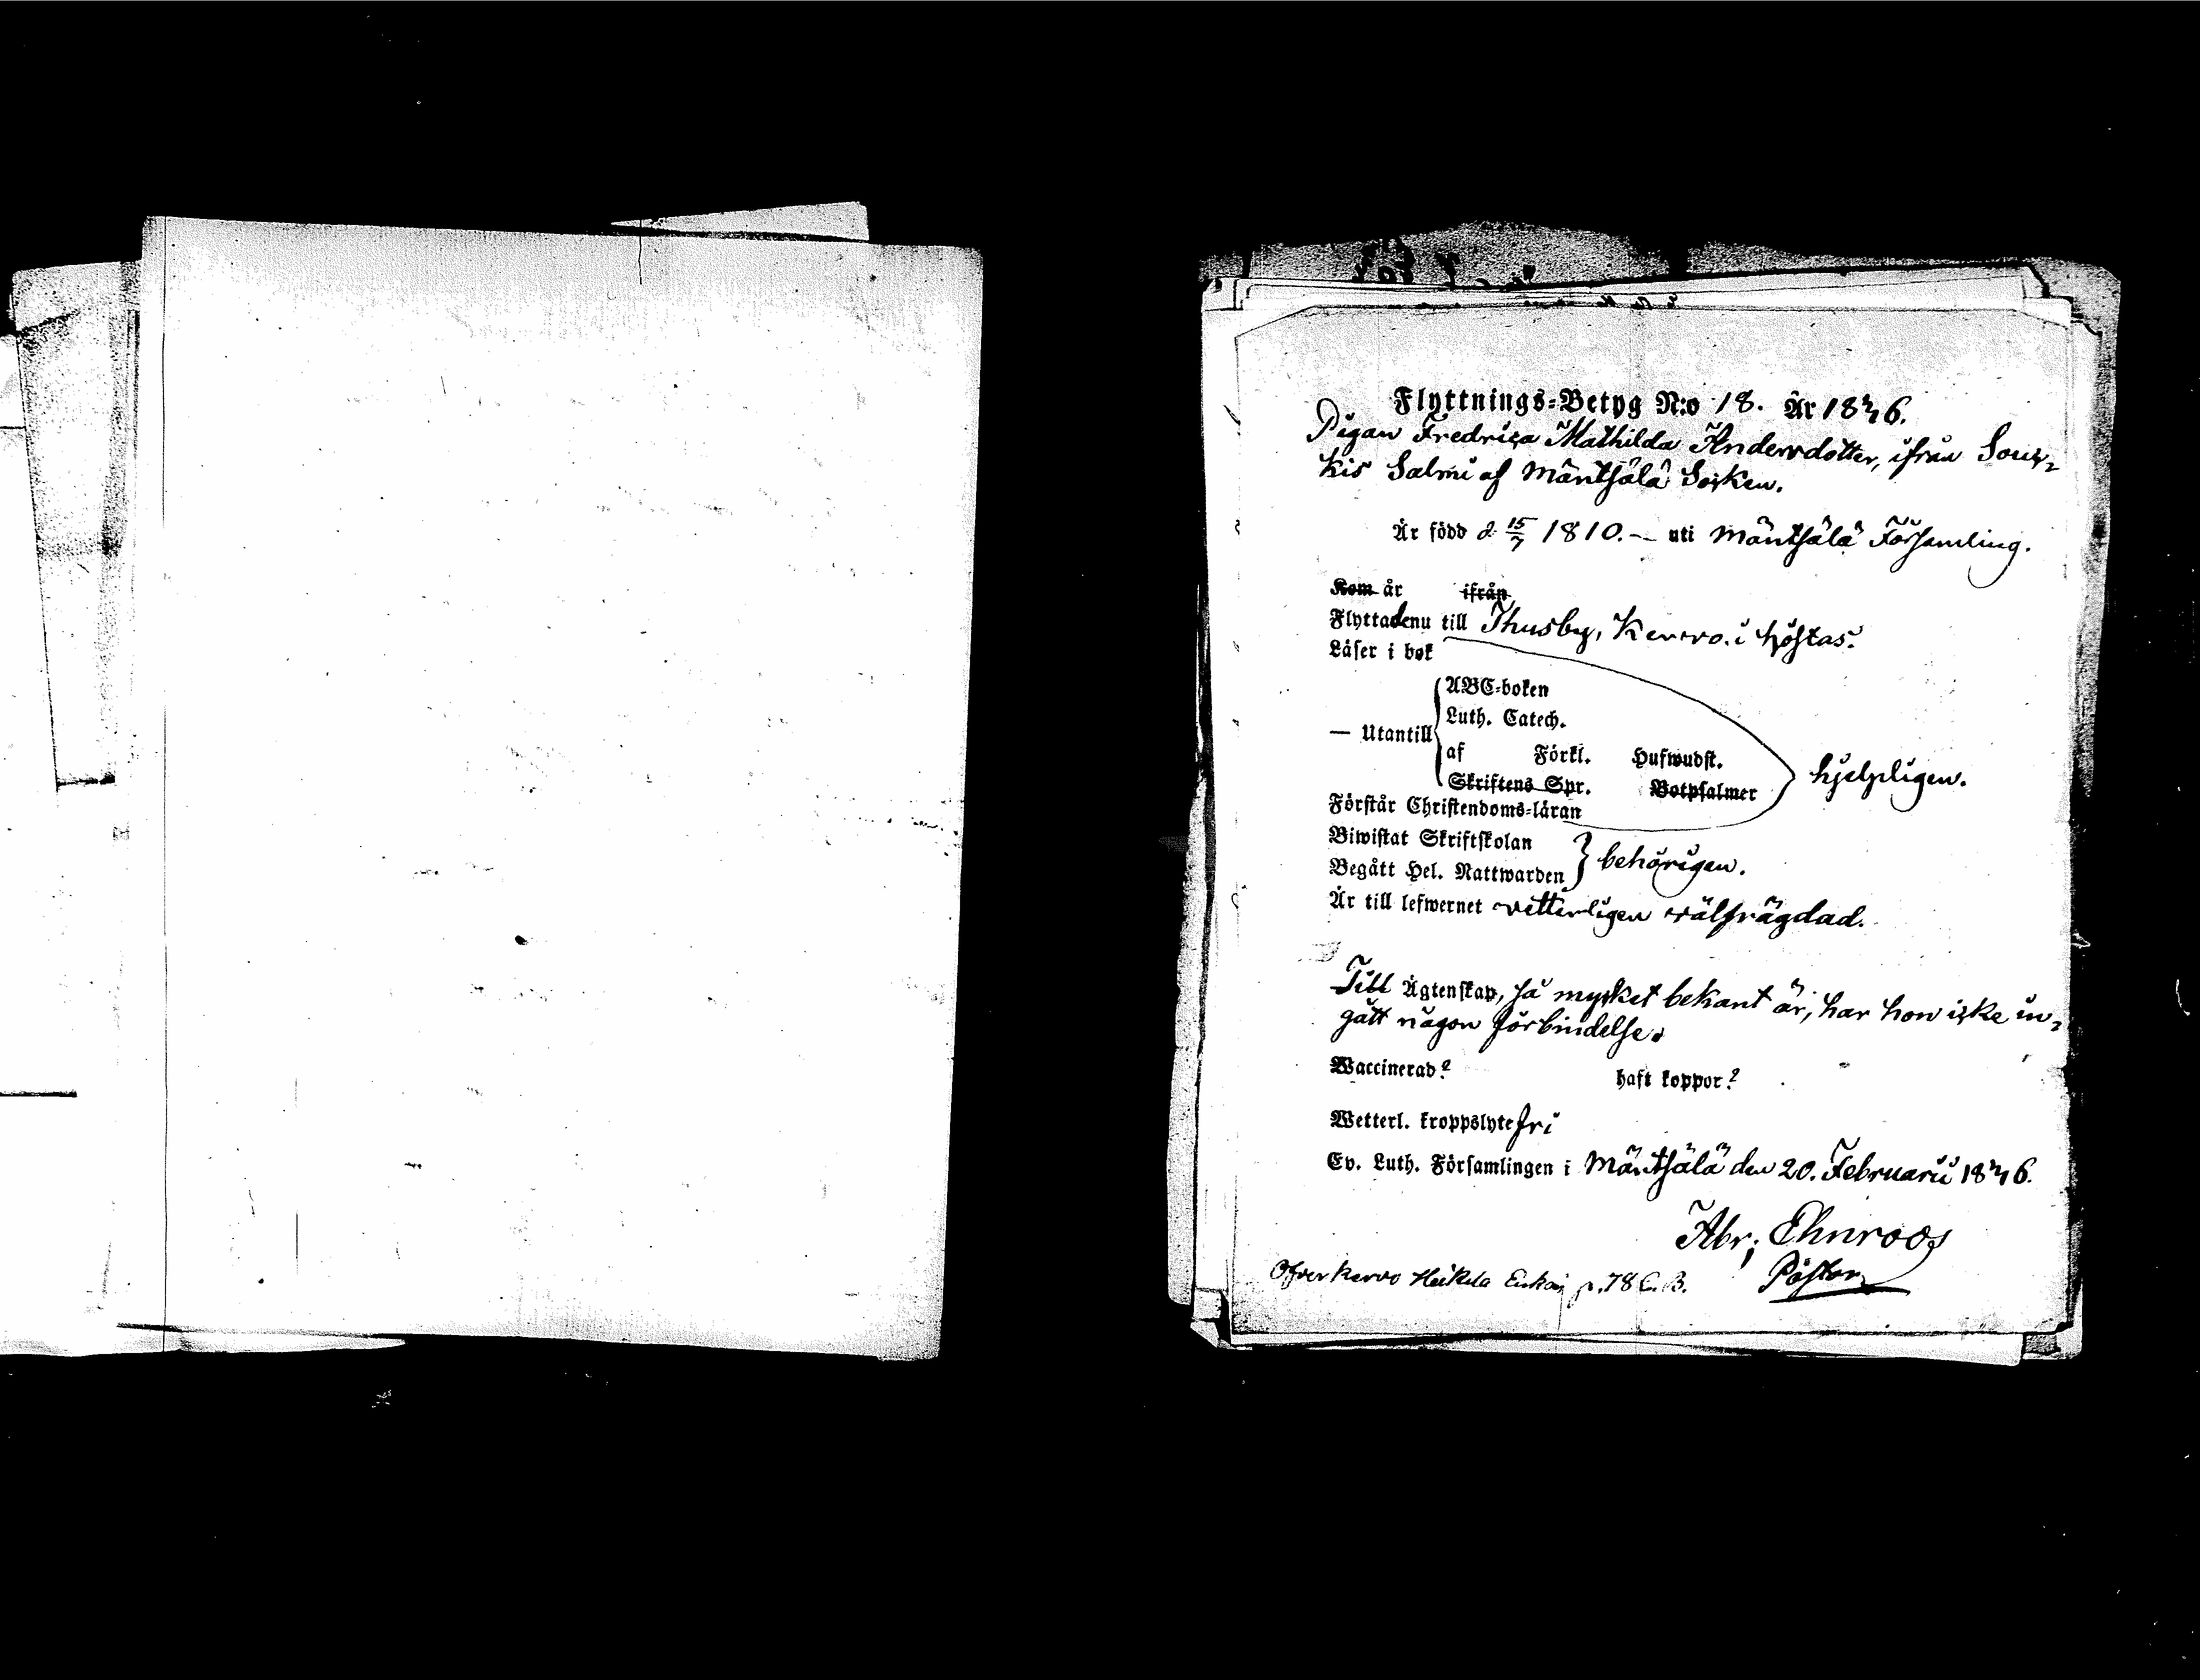 Flyttnings-Betyg N:o 18. År 1846.
Pigan Fredrica Mathilda Andersdotter, ifrån Souk-
kis Salmi af Mäntsälä Socken.
Är född d. 15/7 1810. — uti Mäntsälä Församling.
Kom år ifrån
Flyttade nu till Thusby, Kervo. i höstas.
Läser i bok
ABC-boken
Luth. Catech.
— Utantill
af Förkl. Hufwudst.
hjelpligen.
Skriftens Spr. Botpsalmer
Förstår Christendoms-läran
Biwistat Skriftskolan
behörigen.
Begått Hel. Nattwarden
Är till lefwernet vetterligen välfrägdad.
Till Ägtenskap, så mycket bekant är, har hon icke in-
gått någon förbindelse.
Waccinerad? haft koppor?
Wetterl. kroppslyte fri
Ev. Luth. Församlingen i Mäntsälä den 20. Februarii 1846.
Abr; Ehnroos
Pastor
Ofver Kervo Heikila p. 78 C. B.